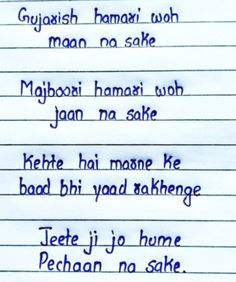 Gujarish hamari woh
maan na sake
Majboori hamari woh
jaan na sake
Kehte hai marne ke
baad bhi yaad rakhenge
Jeete ji jo hume
Pechaan na sake.